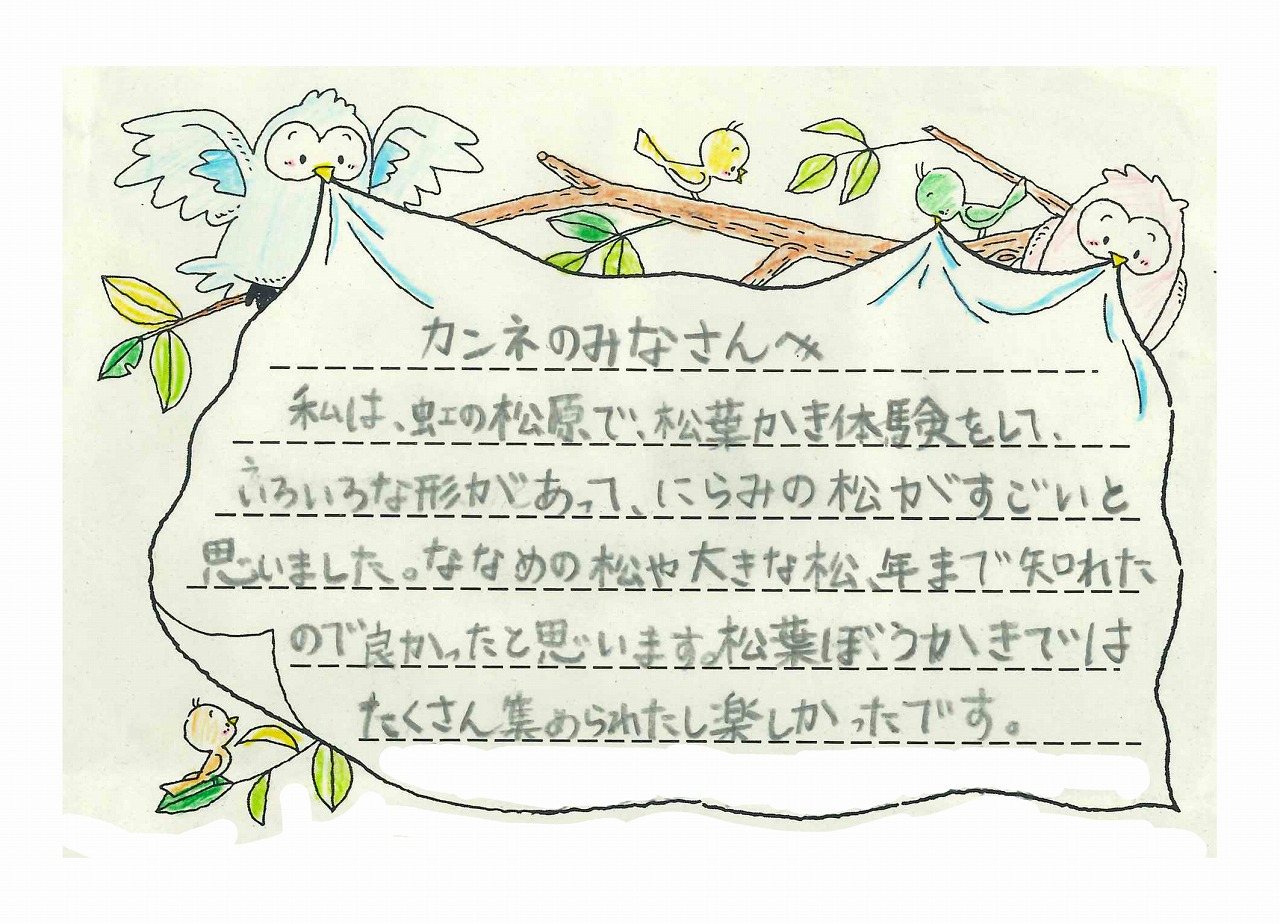 カンネのみなさんへ
私は、虹の松原で、松葉かき体験をして、
いろいろな形があって、にらみの松がすごいと
思いました。ななめの松や大きな松、年まで知れた
ので良かったと思います。松葉ぼうかきでは
たくさん集められたし楽しかったです。